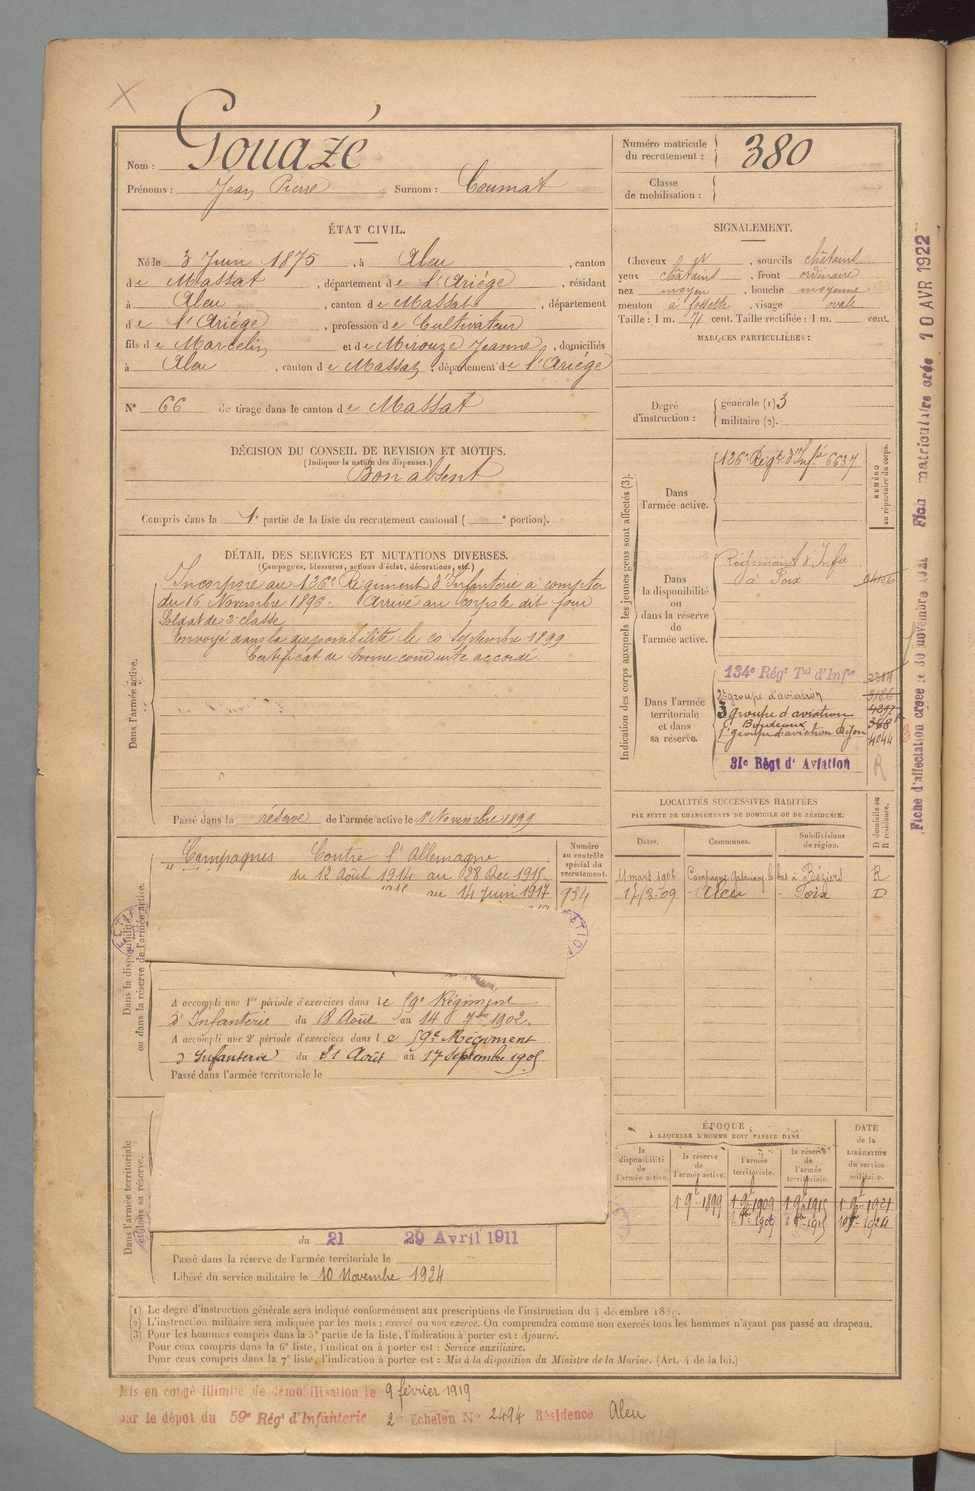 Gouazé
Nom :
Prénoms : Jean Pierre Surnom : Coumat
Numéro matricule du recrutement : 380
Classe de mobilisation :
ÉTAT CIVIL.
Né le 3 Juin 1875, à Aleu, canton
de Massat, département de l'Ariége, résidant
à Aleu, canton de Massat, département
de l'Ariége, profession de Cultivateur
fils de Marcelin et de Mirouze Jeanne, domiciliés
à Aleu, canton de Massat, département de l'Ariége
N° 66 de tirage dans le canton de Massat
SIGNALEMENT.
Cheveux et sourcils châtains
yeux châtains, front ordinaire
nez moyen, bouche moyenne
menton à fossette, visage ovale
Taille : 1 m. 71 cent. Taille rectifiée : 1 m. cent.
MARQUES PARTICULIÈRES :
Degré d'instruction : générale (1) 3
militaire (2).
DÉCISION DU CONSEIL DE REVISION ET MOTIFS.
(Indiquer la nature des dispenses.)
Bon absent
Compris dans la 1e partie de la liste du recrutement cantonal ( e portion).
DÉTAIL DES SERVICES ET MUTATIONS DIVERSES.
(Campagnes, blessures, actions d'éclat, décorations, etc.)
Dans l'armée active.
Incorporé au 126e Régiment d'Infanterie à compter
du 16 Novembre 1896. Arrivé au corps le dit jour
Soldat de 2e classe
Envoyé dans la disponibilité le 20 Septembre 1899
Certificat de bonne conduite accordé
Passé dans la réserve de l'armée active le 1 Novembre 1899
Indication des corps auxquels les jeunes gens sont affectés (3).
NUMÉRO au répertoire du corps.
Dans l'armée active.
126e Régt d'Infie 6637
Dans la disponibilité ou dans la réserve de l'armée active.
Régiment d'Infie
à Foix
Dans l'armée territoriale et dans sa réserve.
134e Régt Tal d'Infie
2e groupe d'aviation
3 groupe d'aviation
Bordeaux
1er groupe d'aviation Dijon 4044
31e Régt d'Aviation R
LOCALITÉS SUCCESSIVES HABITÉES
PAR SUITE DE CHANGEMENTS DE DOMICILE OU DE RÉSIDENCE.
Dates. Communes. Subdivisions de région. D domicile ou R résidence.
11 mars 1906 Béziers R
17/3-09 Aleu Foix D
Dans la disponibilité ou dans la réserve de l'armée active.
Numéro au contrôle spécial du recrutement.
934
Campagnes Contre l'Allemagne
du 12 Août 1914 au 28 Dec 1915
au 14 Juin 1917
A accompli une 1re période d'exercices dans le 59e Régiment
d'Infanterie du 18 Août au 14 7bre 1902.
A accompli une 2e période d'exercices dans le 59e Régiment
d'Infanterie du 21 Août au 17 Septembre 1905
Passé dans l'armée territoriale le
Dans l'armée territoriale et dans sa réserve.
du 21 29 Avril 1911
Passé dans la réserve de l'armée territoriale le
Libéré du service militaire le 10 Novembre 1924
ÉPOQUE
À LAQUELLE L'HOMME DOIT PASSER DANS
DATE de la LIBÉRATION du service militaire.
la disponibilité de l'armée active. la réserve de l'armée active. l'armée territoriale. la réserve de l'armée territoriale.
1 9bre 1899 1 9bre 1909 1 9bre 1915 1 9bre 1921
(1) Le degré d'instruction générale sera indiqué conformément aux prescriptions de l'instruction du 4 décembre 1889.
(2) L'instruction militaire sera indiquée par les mots : exercé ou non exercé. On comprendra comme non exercés tous les hommes n'ayant pas passé au drapeau.
(3) Pour les hommes compris dans la 5e partie de la liste, l'indication à porter est : Ajourné.
Pour ceux compris dans la 6e liste, l'indication à porter est : Service auxiliaire.
Pour ceux compris dans la 7e liste, l'indication à porter est : Mis à la disposition du Ministre de la Marine. (Art. 4 de la loi.)
Mis en congé illimité de démobilisation le 9 février 1919
par le dépôt du 59e Régt d'Infanterie 2e Echelon N° 2494 Résidence Aleu
Fiche d'affectation créée le 30 novembre 1921 Fich matriculaire crée 10 AVR 1922